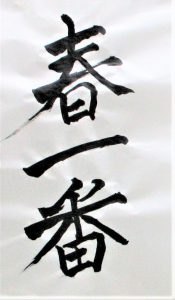 春一番